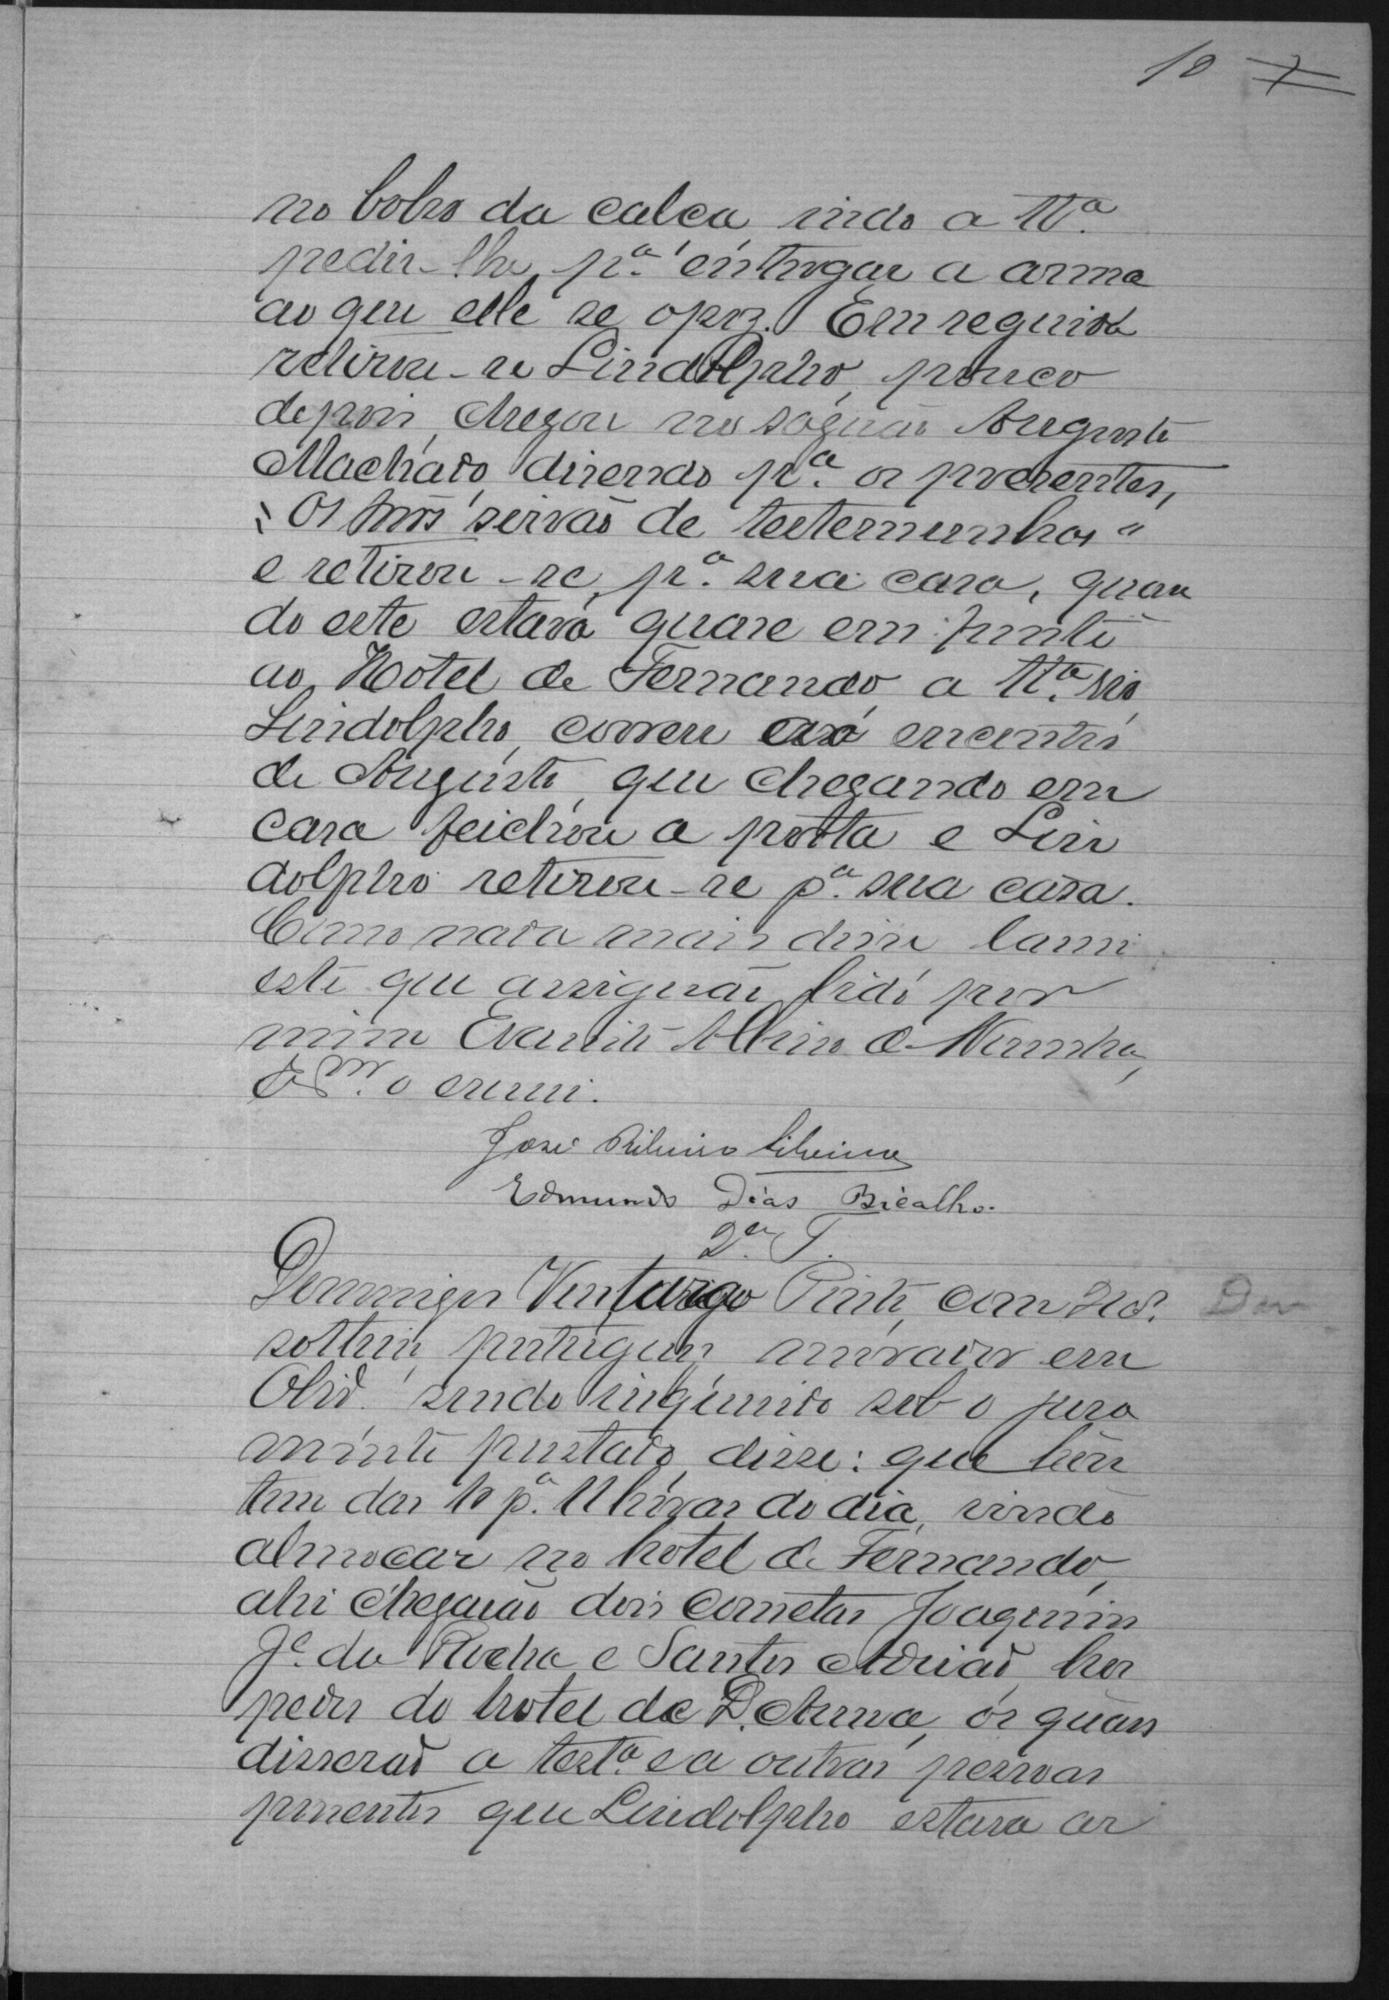 10 7
no bolso da calça, indo a Tª.
pedir-lhe pª. entregar a arma
ao que elle se opoz. Em seguida
retirou-se Lindolpho, pouco
depois, chegou no saguão Augusto
Machado, disendo pª. os presentes,
"Os snrs servão de testemunhas"
e retirou-se, pª. sua casa, quan
do este estava quase em frente
ao Hotel de Fernando, a Tª. vio
Lindolpho, correu ao encontro
de Augusto, que chegando em
casa feichou a porta e Lin
dolpho retirou-se pª. sua casa.
Como nada mais disse lavrei
este que assignão lido por
mim Evaristo Albino de Noronha,
Esm. o escrevi.
José Ribeiro Silveira
Edmundo Dias Bicalho.
2ª. T.
Domingos Ventura Pinto, com
solteiro, portuguez, morador em
Olivª. sendo inquirido sob o jura
mento prestado, disse: que hon
tem das 10 pª. 11 horas do dia, vindo
almoçar no hotel de Fernando,
ahi chegarão dois cometas Joaquim
Jé. da Rocha e Santos Adrião, hos
pedes do hotel de D. Anna, os quaes
disserão a testª. e a outras pessoas
presentes que Lindolpho estava ar